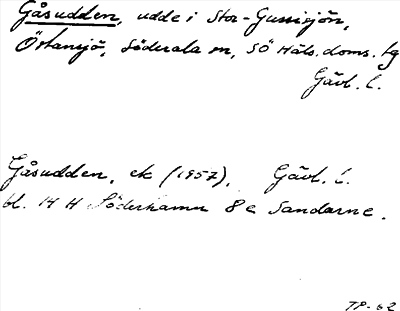 Gåsudden, udde i Stor-Gussisjön,
Östansjö, Söderala sn, SÖ Häls. doms. tg
Gävl. l.
Gåsudden, ek (1957), Gävl. l.
bl. 14 H Söderhamn 8 e Sandarne.
TP-62